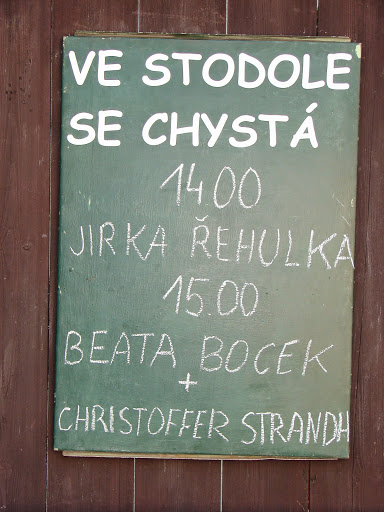 VE STODOLE
SE CHYSTÁ
14.00
JIRKA ŘEHULKA
15.00
BEATA BOCEK
+
CHRISTOFFER STRANDH